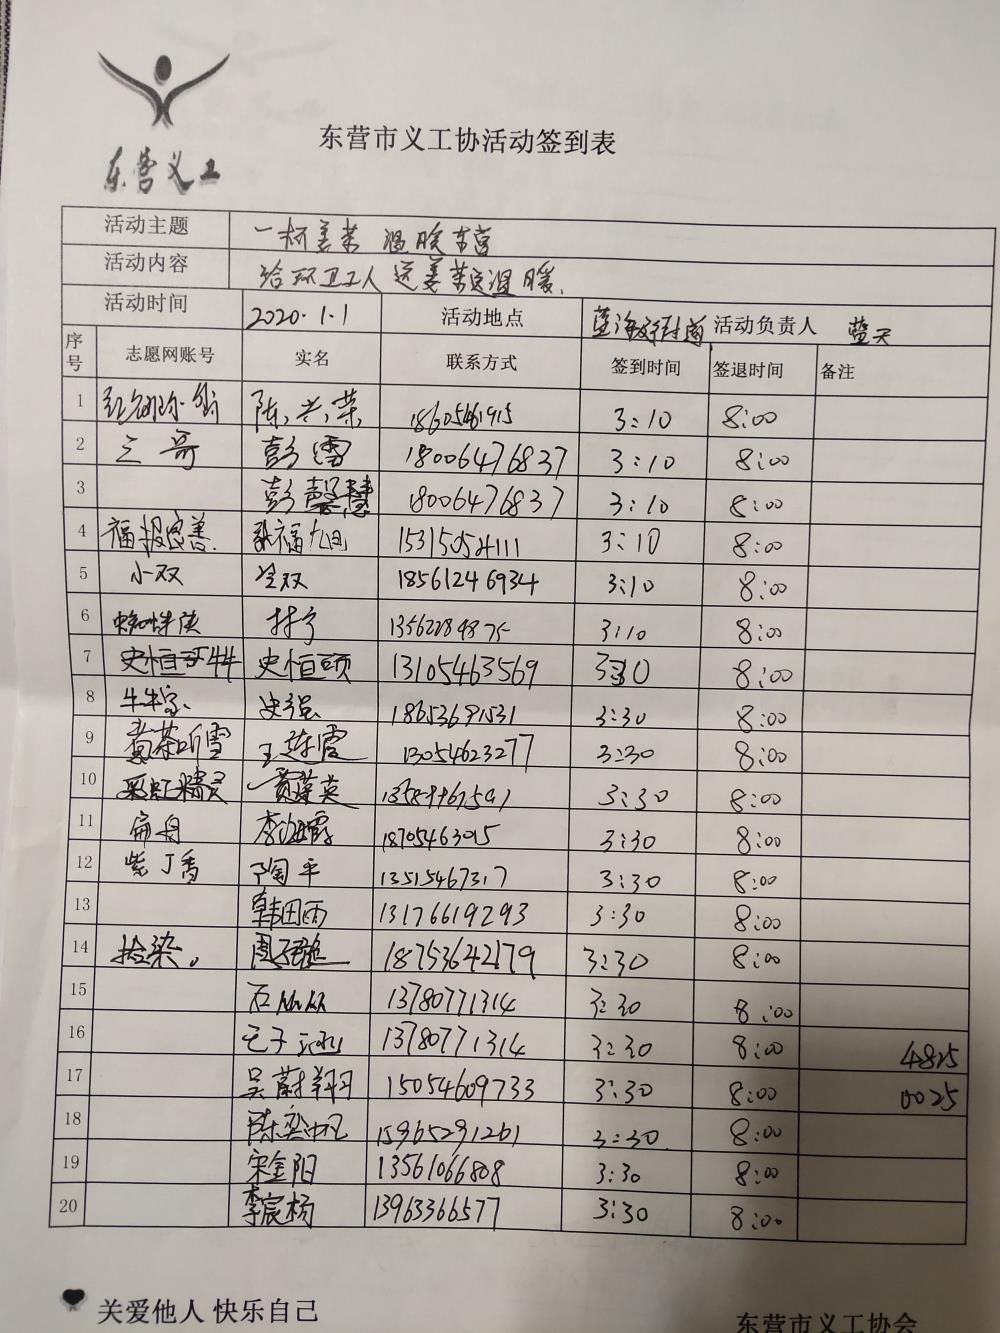 东营义工
东营市义工协活动签到表
活动主题 一杯姜茶 温暖东营
活动内容 给环卫工人送姜茶送温暖.
活动时间 2020.1.1 活动地点 活动负责人 蓝天
序号 志愿网账号 实名 联系方式 签到时间 签退时间 备注
1 陈兴荣 18605461915 3:10 8:00
2 三哥 彭雪 18006476837 3:10 8:00
3 彭馨慧 18006476837 3:10 8:00
4 福报思善 张福旭 3:10 8:00
5 小双 双 18561246934 3:10 8:00
6 蜘蛛侠 3:10 8:00
7 史恒 史恒硕 13105463569 8:00
8 牛牛家 史强 18653691531 3:30 8:00
9 煮茶听雪 王莲霞 13054623277 3:30 8:00
10 彩虹精灵 黄蓬英 3:30 8:00
11 扁舟 李海霞 18705463015 3:30 8:00
12 紫丁香 陶平 13515467317 3:30 8:00
13 韩田雨 13176619293 3:30 8:00
14 拾染。 周 18753642179 3:30 8:00
15 石 13780771314 3:30 8:00
16 子涵 13780771314 3:30 8:00 4815
17 吴蔚翔 15054609733 3:30 8:00 0025
18 陈奕帆 15965291261 3:30 8:00
19 宋金阳 13561066808 3:30 8:00
20 李宸杨 13963366577 3:30 8:00
关爱他人 快乐自己
东营市义工协会